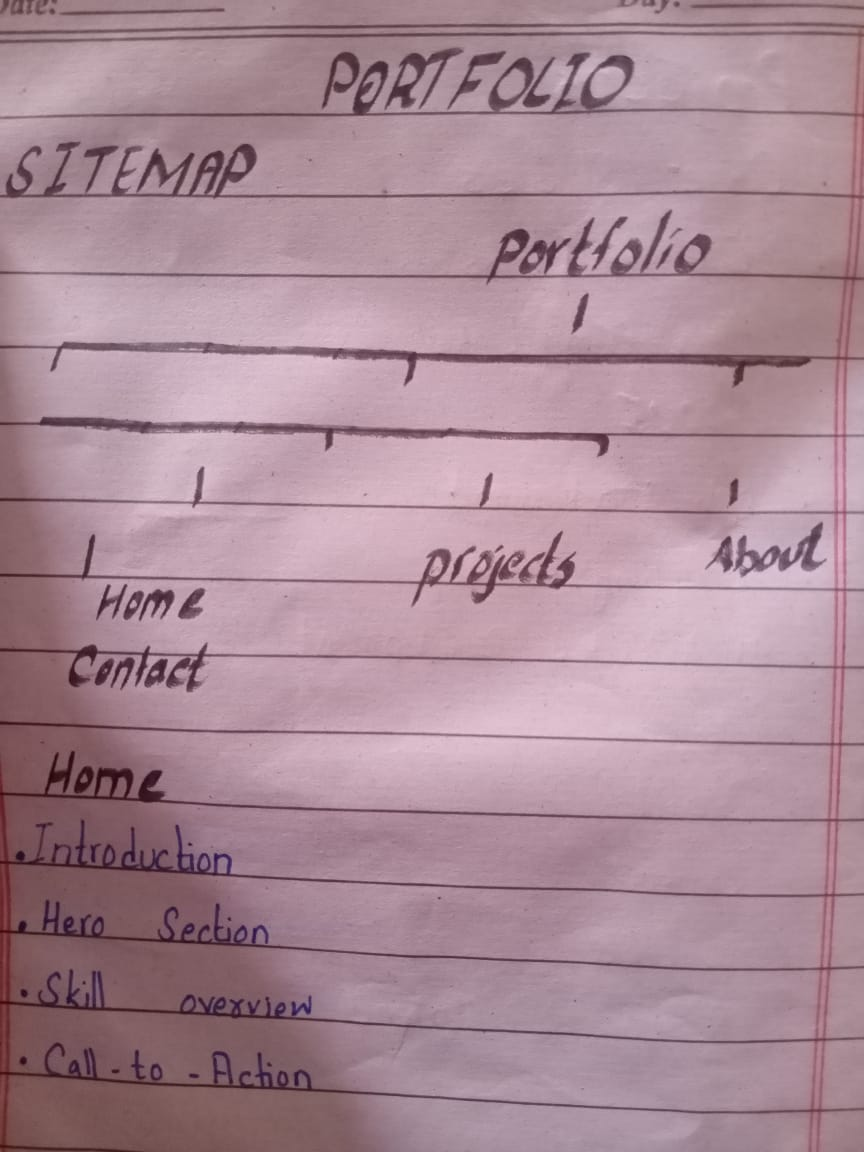 Date:
Day:
PORTFOLIO
SITEMAP
Portfolio
projects About
Home
Contact
Home
. Introduction
. Hero Section
. Skill overview
. Call-to-Action